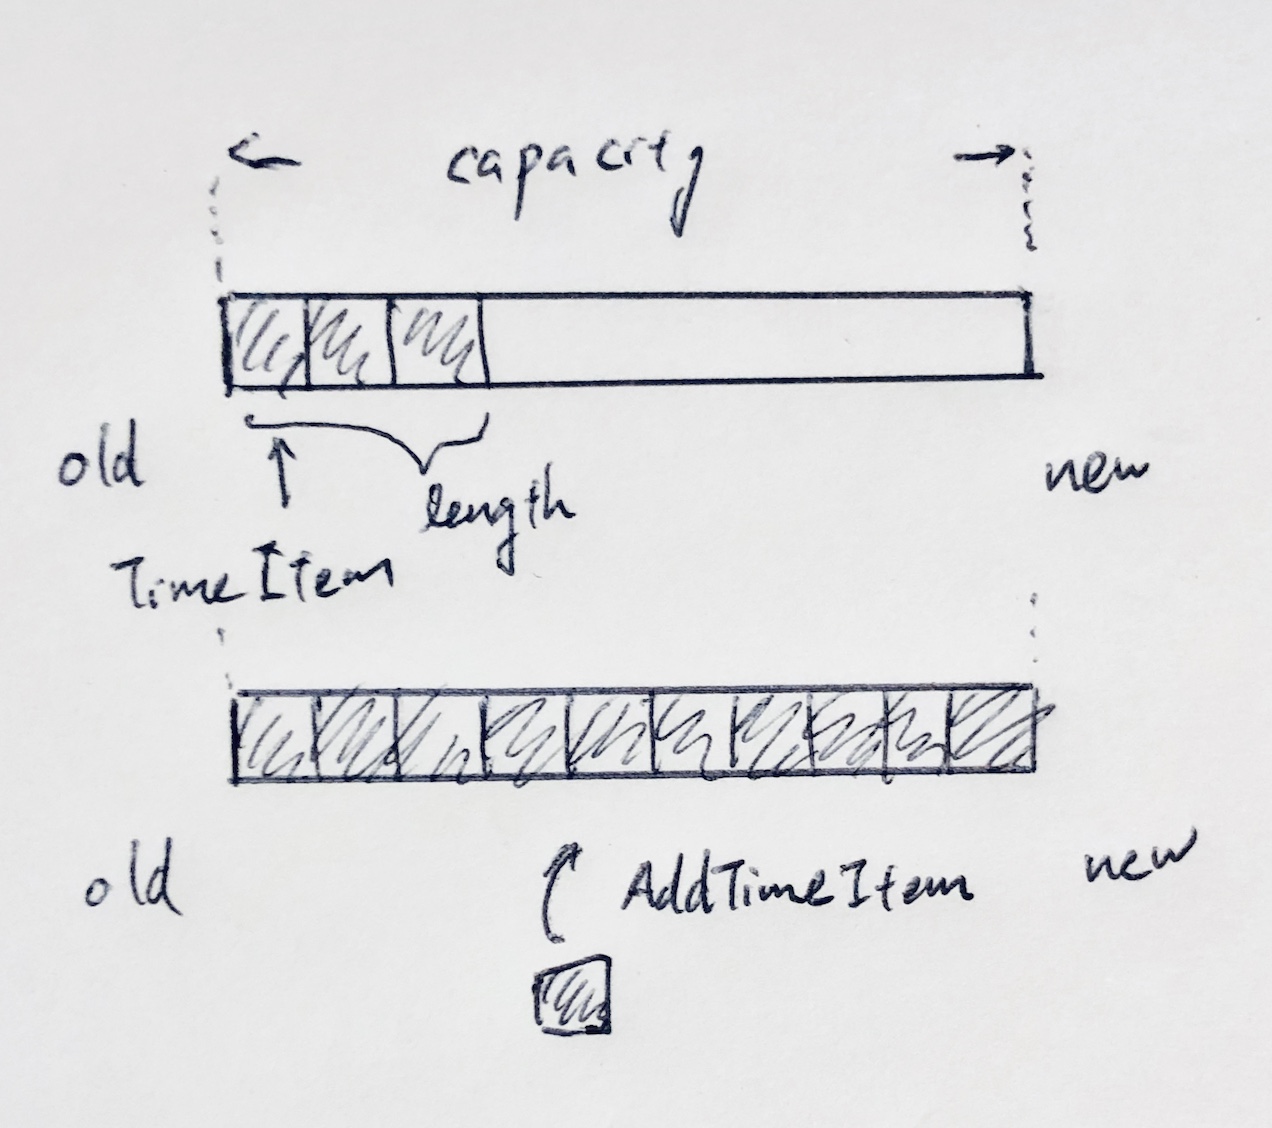 capacity
old
new
length
TimeItem
old
AddTimeItem
new